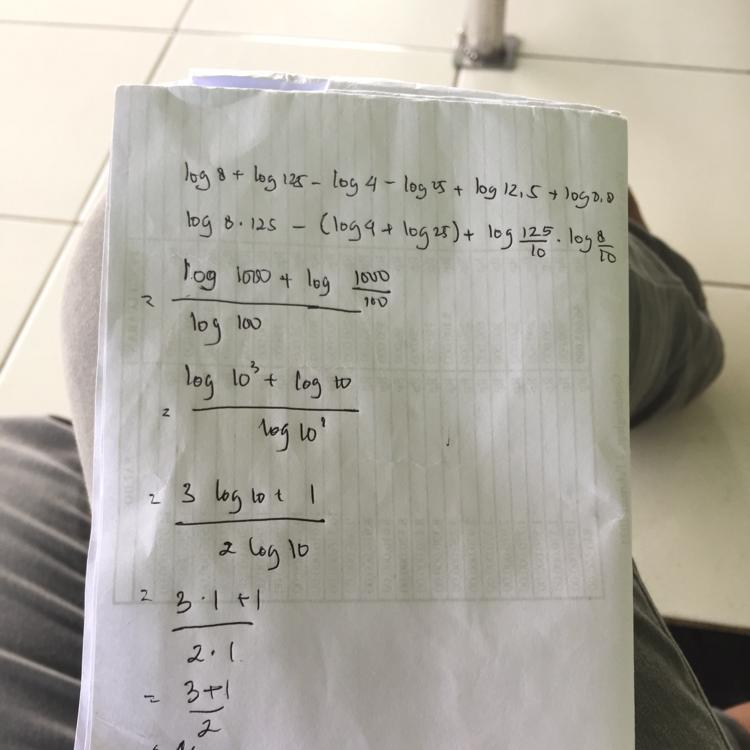 log 8 + log 125 - log 4 - log 25 + log 12,5 + log 0,8
log 8 . 125 - (log 4 + log 25) + log 125/10 . log 8/10
= log 1000 + log 1000/100
log 100
= log 10³ + log 10
log 10²
= 3 log 10 + 1
2 log 10
= 3 . 1 + 1
2 . 1
= 3+1
2